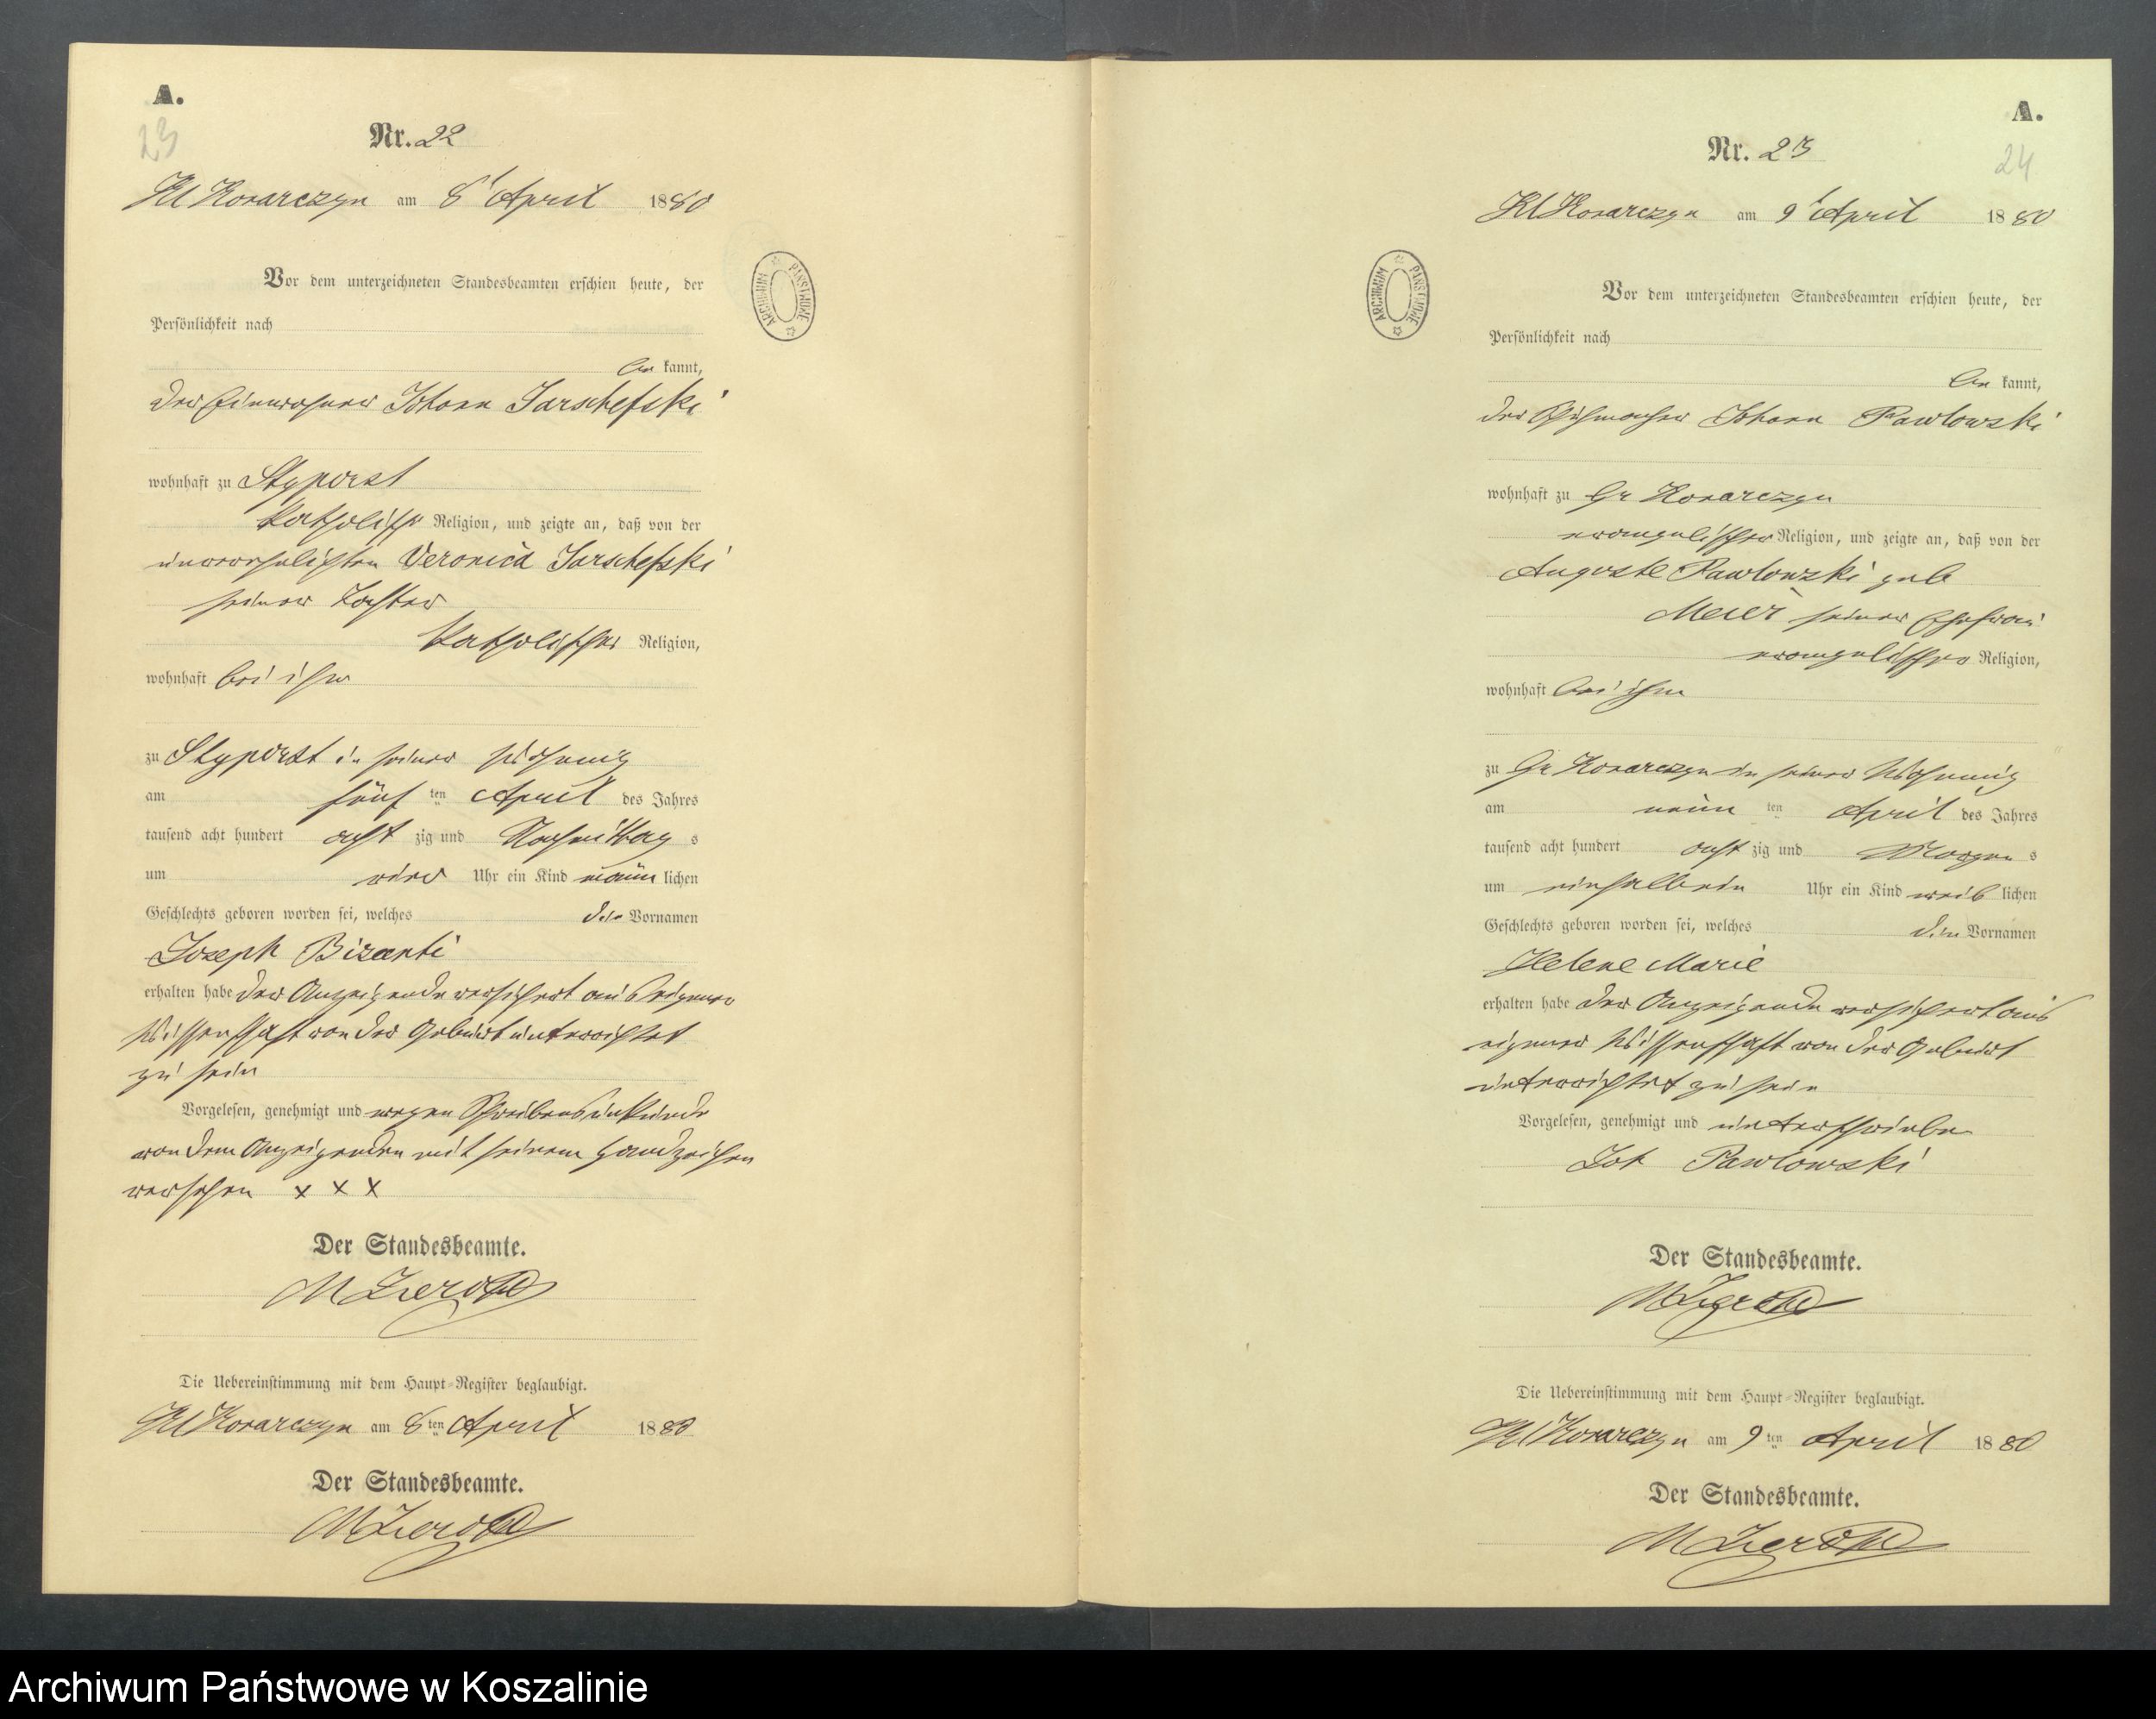 A.
23
Nr. 22
Kl Konarczyn am 8t April 1880
Vor dem unterzeichneten Standesbeamten erschien heute, der
Persönlichkeit nach
be kannt,
der Einwohner Johann Jarschefski
wohnhaft zu Styporst
katholisch Religion, und zeigte an, daß von der
unverehelichten Veronica Jarschefski
seiner Tochter
katholischer Religion,
wohnhaft bei ihm
zu Styporst in seiner Wohnung
am fünf ten April des Jahres
tausend acht hundert acht zig und Nachmittag s
um vier Uhr ein Kind männ lichen
Geschlechts geboren worden sei, welches den Vornamen
Joseph Bizanti
erhalten habe der Anzeigende versichert aus eigener
Wissenschaft von der Geburt unterrichtet
zu sein
Vorgelesen, genehmigt und wegen Schreibensunkunde
von dem Anzeigenden mit seinem Handzeichen
versehen x x x
Der Standesbeamte.
Die Uebereinstimmung mit dem Haupt-Register beglaubigt.
Kl Konarczyn am 8 ten April 1880
Der Standesbeamte.
ARCHIWUM PAŃSTWOWE
A.
24
Nr. 23
Kl Konarczyn am 9t April 1880
Vor dem unterzeichneten Standesbeamten erschien heute, der
Persönlichkeit nach
be kannt,
der Schuhmacher Johann Pawlowski
wohnhaft zu Gr Konarczyn
evangelischer Religion, und zeigte an, daß von der
Auguste Pawlowski geb
Meier seiner Ehefrau
evangelischer Religion,
wohnhaft bei ihm
zu Gr Konarczyn in seiner Wohnung
am neun ten April des Jahres
tausend acht hundert acht zig und Morgen s
um einhalbein Uhr ein Kind weib lichen
Geschlechts geboren worden sei, welches den Vornamen
Helene Marie
erhalten habe der Anzeigende versichert aus
eigener Wissenschaft von der Geburt
unterrichtet zu sein
Vorgelesen, genehmigt und unterschrieben
Joh Pawlowski
Der Standesbeamte.
Die Uebereinstimmung mit dem Haupt-Register beglaubigt.
Kl Konarczyn am 9 ten April 1880
Der Standesbeamte.
ARCHIWUM PAŃSTWOWE
Archiwum Państwowe w Koszalinie